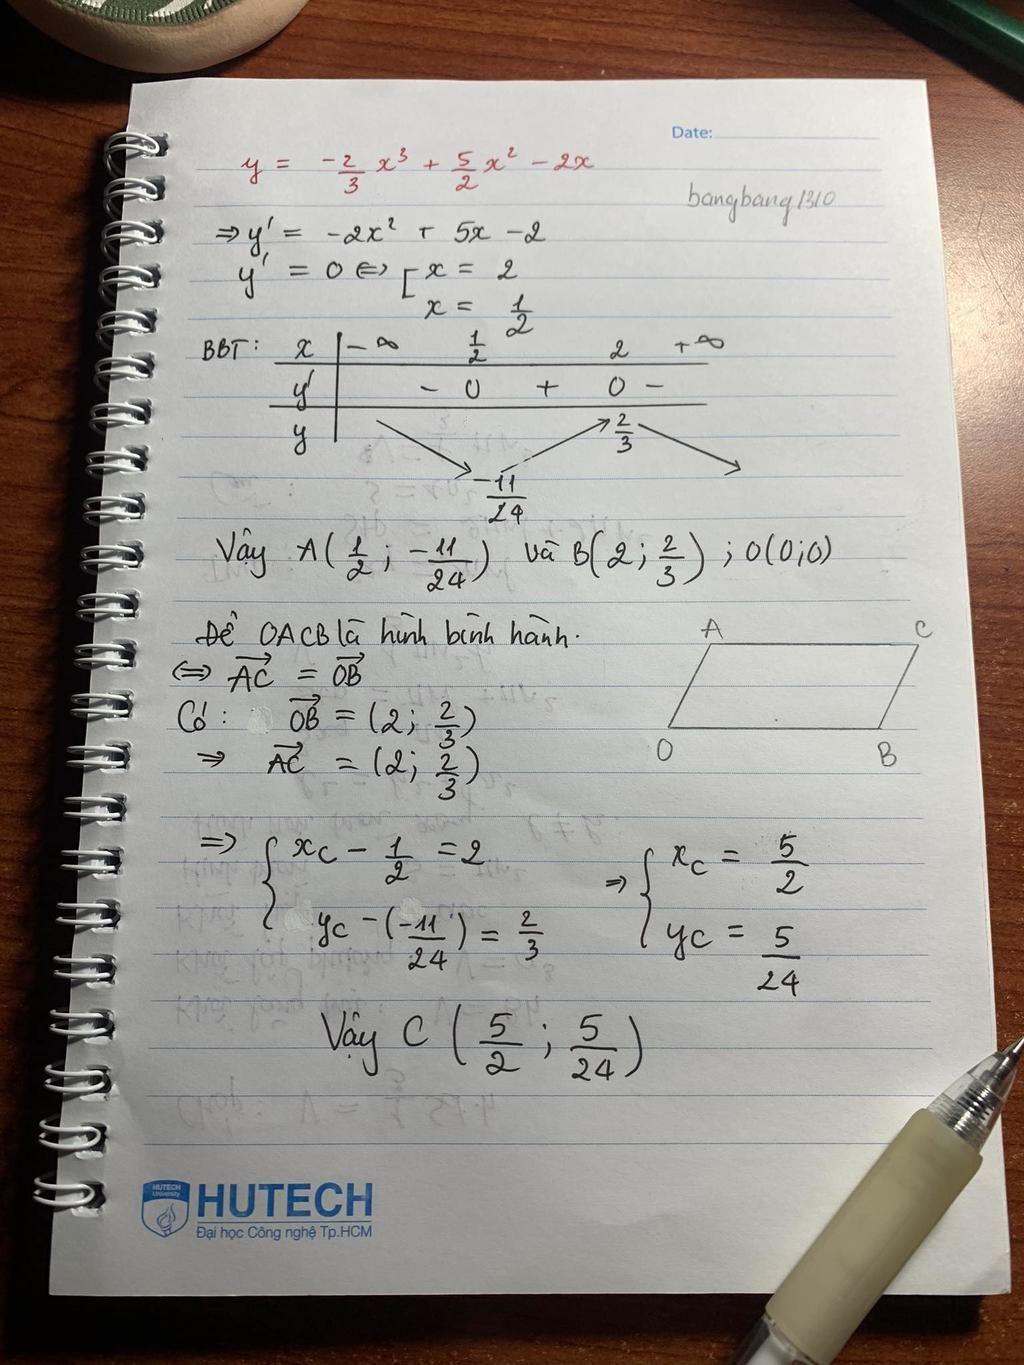 Date:
y = -2/3 x³ + 5/2 x² - 2x
bangbang1310
⇒ y' = -2x² + 5x - 2
y' = 0 ⇔ [ x = 2
x = 1/2
BBT: x | -∞ 1/2 2 +∞
y' | - 0 + 0 -
y | ↘ -11/24 ↗ 2/3 ↘
Vậy A(1/2 ; -11/24) và B(2 ; 2/3) ; O(0;0)
Để OACB là hình bình hành.
A C
⇔ AC→ = OB→
Có: OB→ = (2; 2/3)
O B
⇒ AC→ = (2; 2/3)
⇒ { xC - 1/2 = 2 ⇒ { xC = 5/2
yC - (-11/24) = 2/3 yC = 5/24
Vậy C (5/2 ; 5/24)
HUTECH University
HUTECH
Đại học Công nghệ Tp.HCM